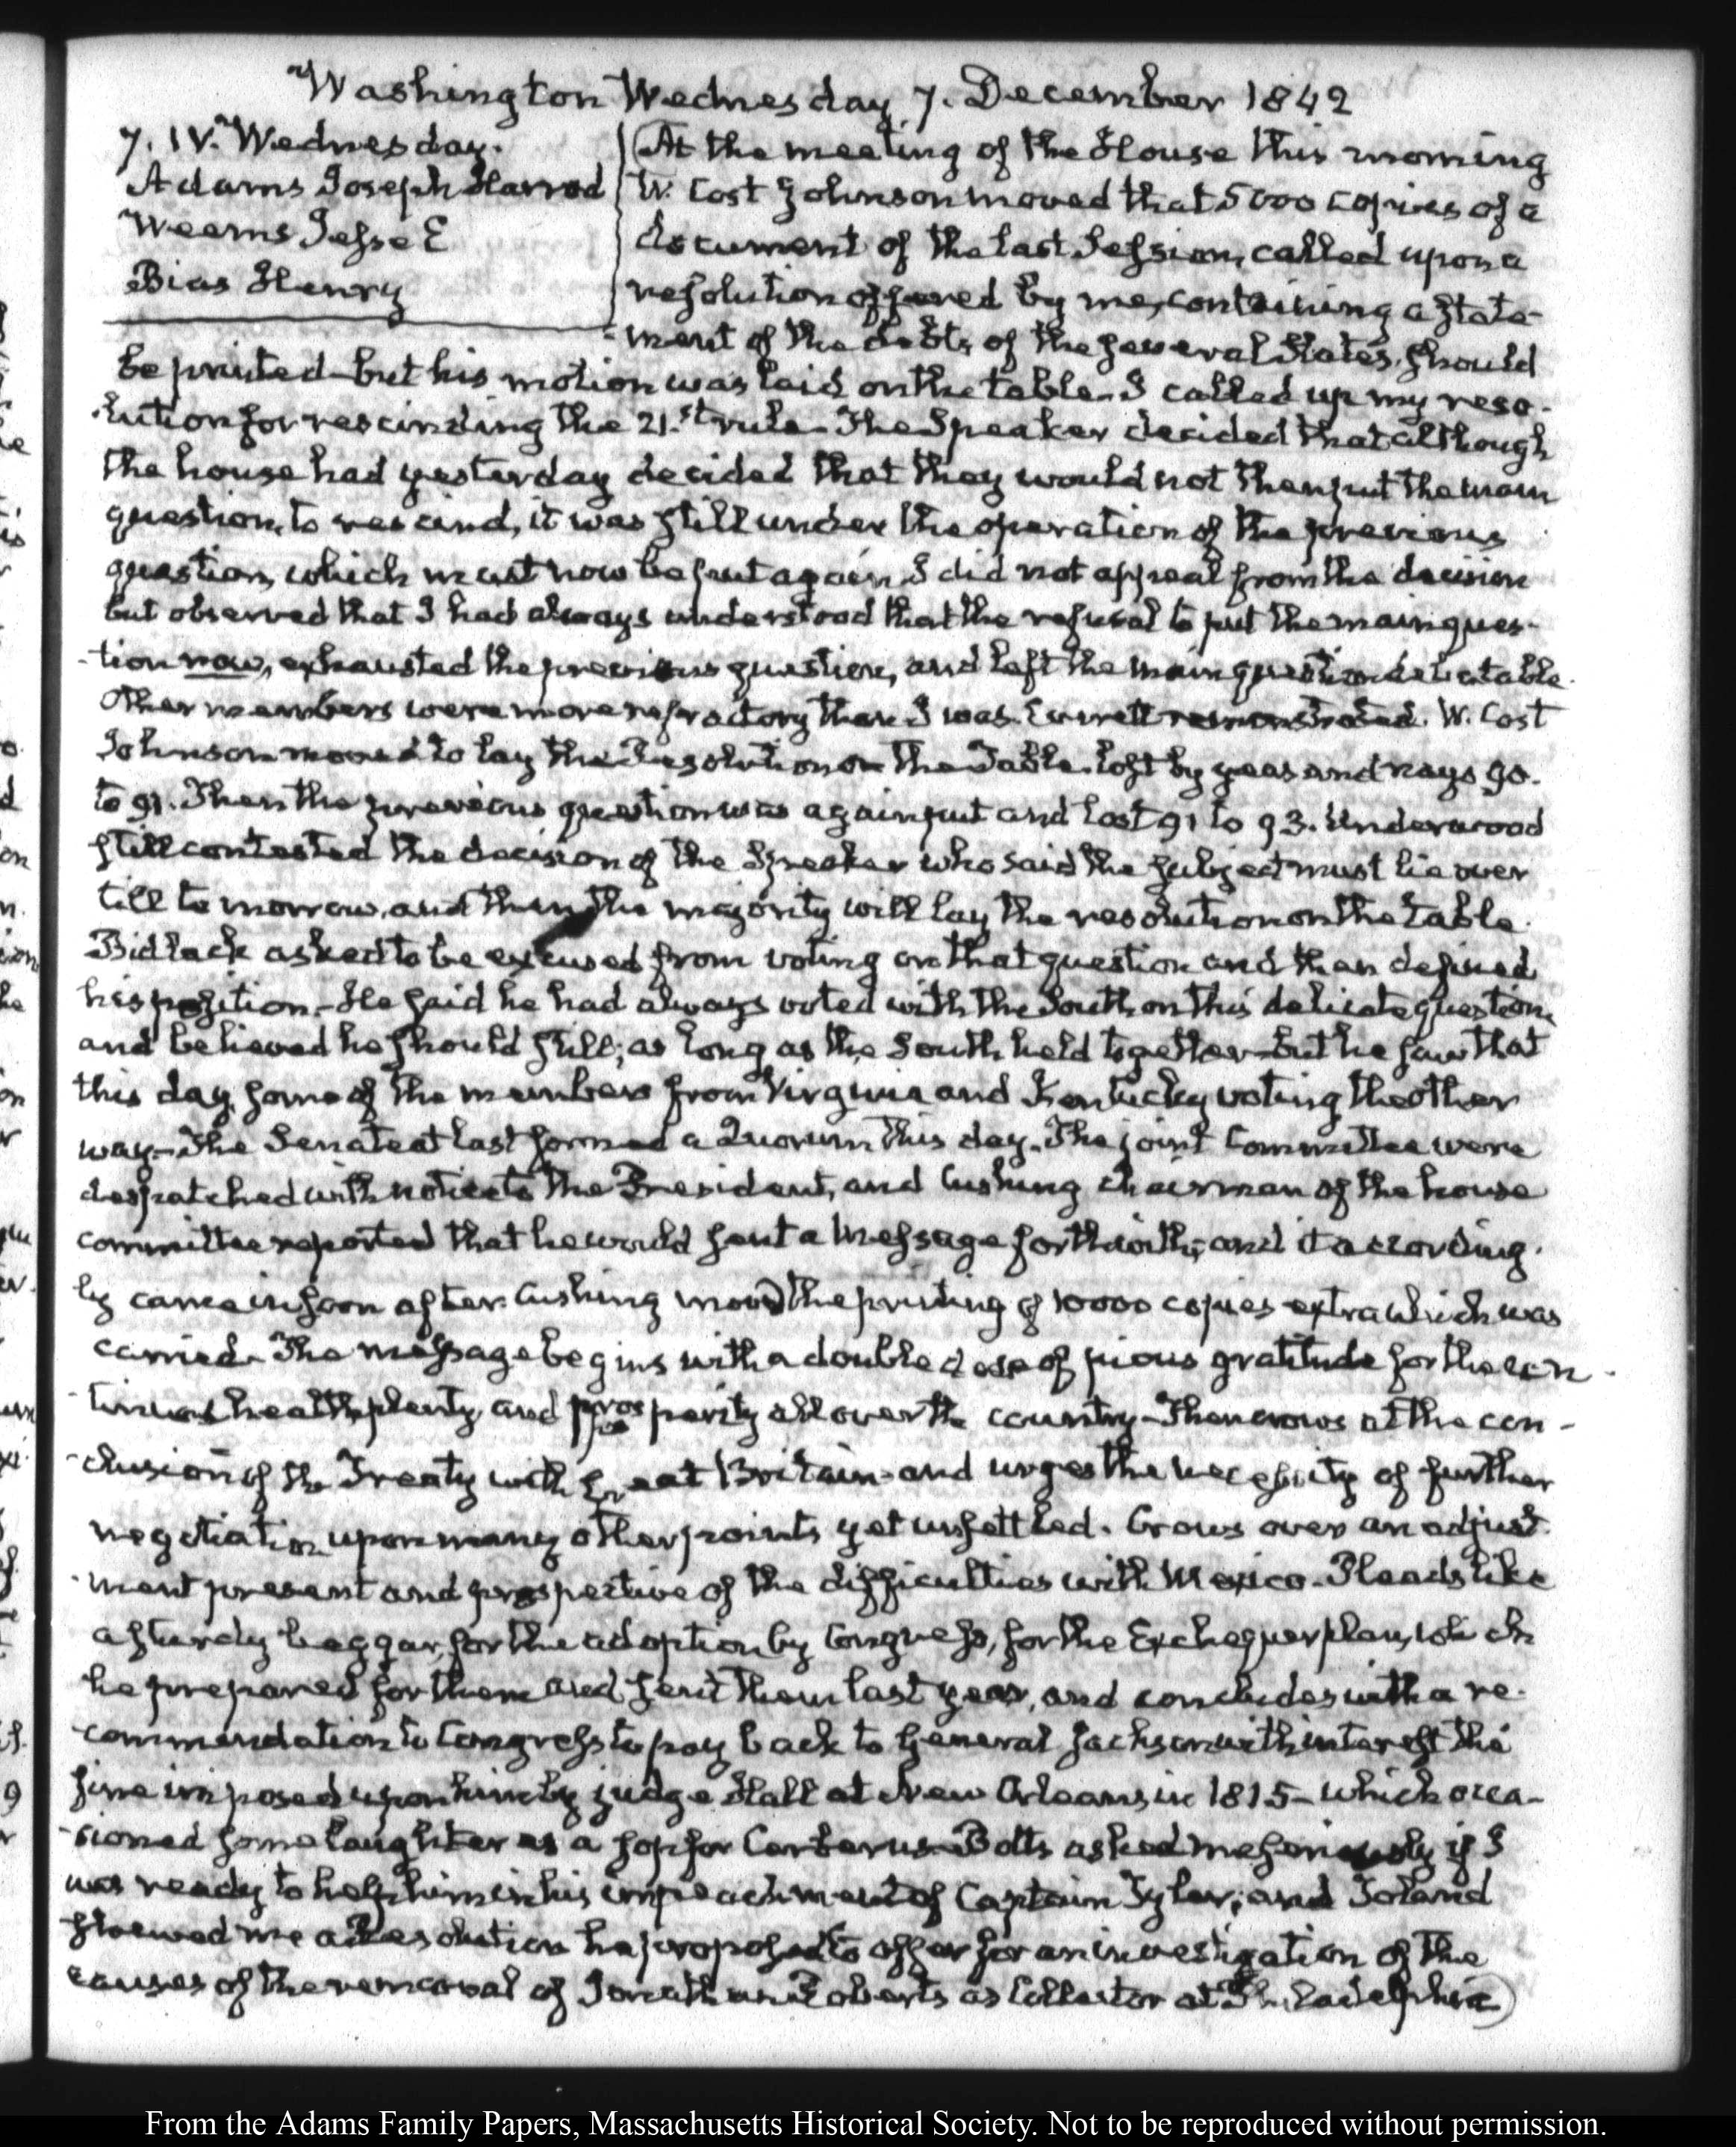 Washington Wednesday 7. December 1842
7. IV. Wednesday.
Adams Joseph Harrod
Weems Jesse E
Bias Henry
At the meeting of the House this morning
W. Cost Johnson moved that 5000 copies of a
document of the last Session, called upon a
resolution offered by me, containing a state-
ment of the debts of the several States, should
be printed—but his motion was laid on the table—I called up my reso-
lution for rescinding the 21.st rule—The Speaker decided that although
the house had yesterday decided that they would not then put the main
question, to rescind, it was still under the operation of the previous
question, which must now be put again. I did not appeal from the decision
but observed that I had always understood that the refusal to put the main ques-
-tion now, exhausted the previous question, and left the main question debatable.
Other members were more refractory than I was. Everett remonstrated. W. Cost
Johnson moved to lay the Resolution on the Table. lost by yeas and nays 90.
to 91. Then the previous question was again put and lost 91 to 93. Underwood
still contested the decision of the Speaker who said the subject must lie over
till to morrow, and then the majority will lay the resolution on the table.
Bidlack asked to be excused from voting on that question and then defined
his position.—He said he had always voted with the South on this delicate question,
and believed he should still; as long as the South held together—but he saw that
this day some of the members from Virginia and Kentucky voting the other
way—The Senate at last formed a Quorum this day. The joint Committee were
despatched with notice to the President, and Cushing chairman of the house
committee reported that he would sent a Message forthwith; and it according-
ly came in soon after. Cushing moved the printing of 10000 copies extra which was
carried. The message begins with a double dose of pious gratitude for the con-
tinual health, plenty, and prosperity all over the country—Then crows at the con-
-clusion of the Treaty with Great Britain—and urges the necessity of further
negotiation upon many other points yet unsettled. Crows over an adjust-
-ment present and prospective of the difficulties with Mexico—Pleads like
a sturdy beggar, for the adoption by Congress, for the Exchequer plan, which
he prepared for them and sent them last year, and concludes with a re-
-commendation to Congress to pay back to General Jackson with interest the
fine imposed upon him by judge Hall at New Orleans in 1815—which occa-
-sioned some laughter as a sop for Cerberus—Botts asked me seriously if I
was ready to help him in his impeachment of Captain Tyler; and Toland
showed me a Resolution he proposed to offer for an investigation of the
causes of the removal of Jonathan Roberts as Collector at Philadelphia
From the Adams Family Papers, Massachusetts Historical Society. Not to be reproduced without permission.